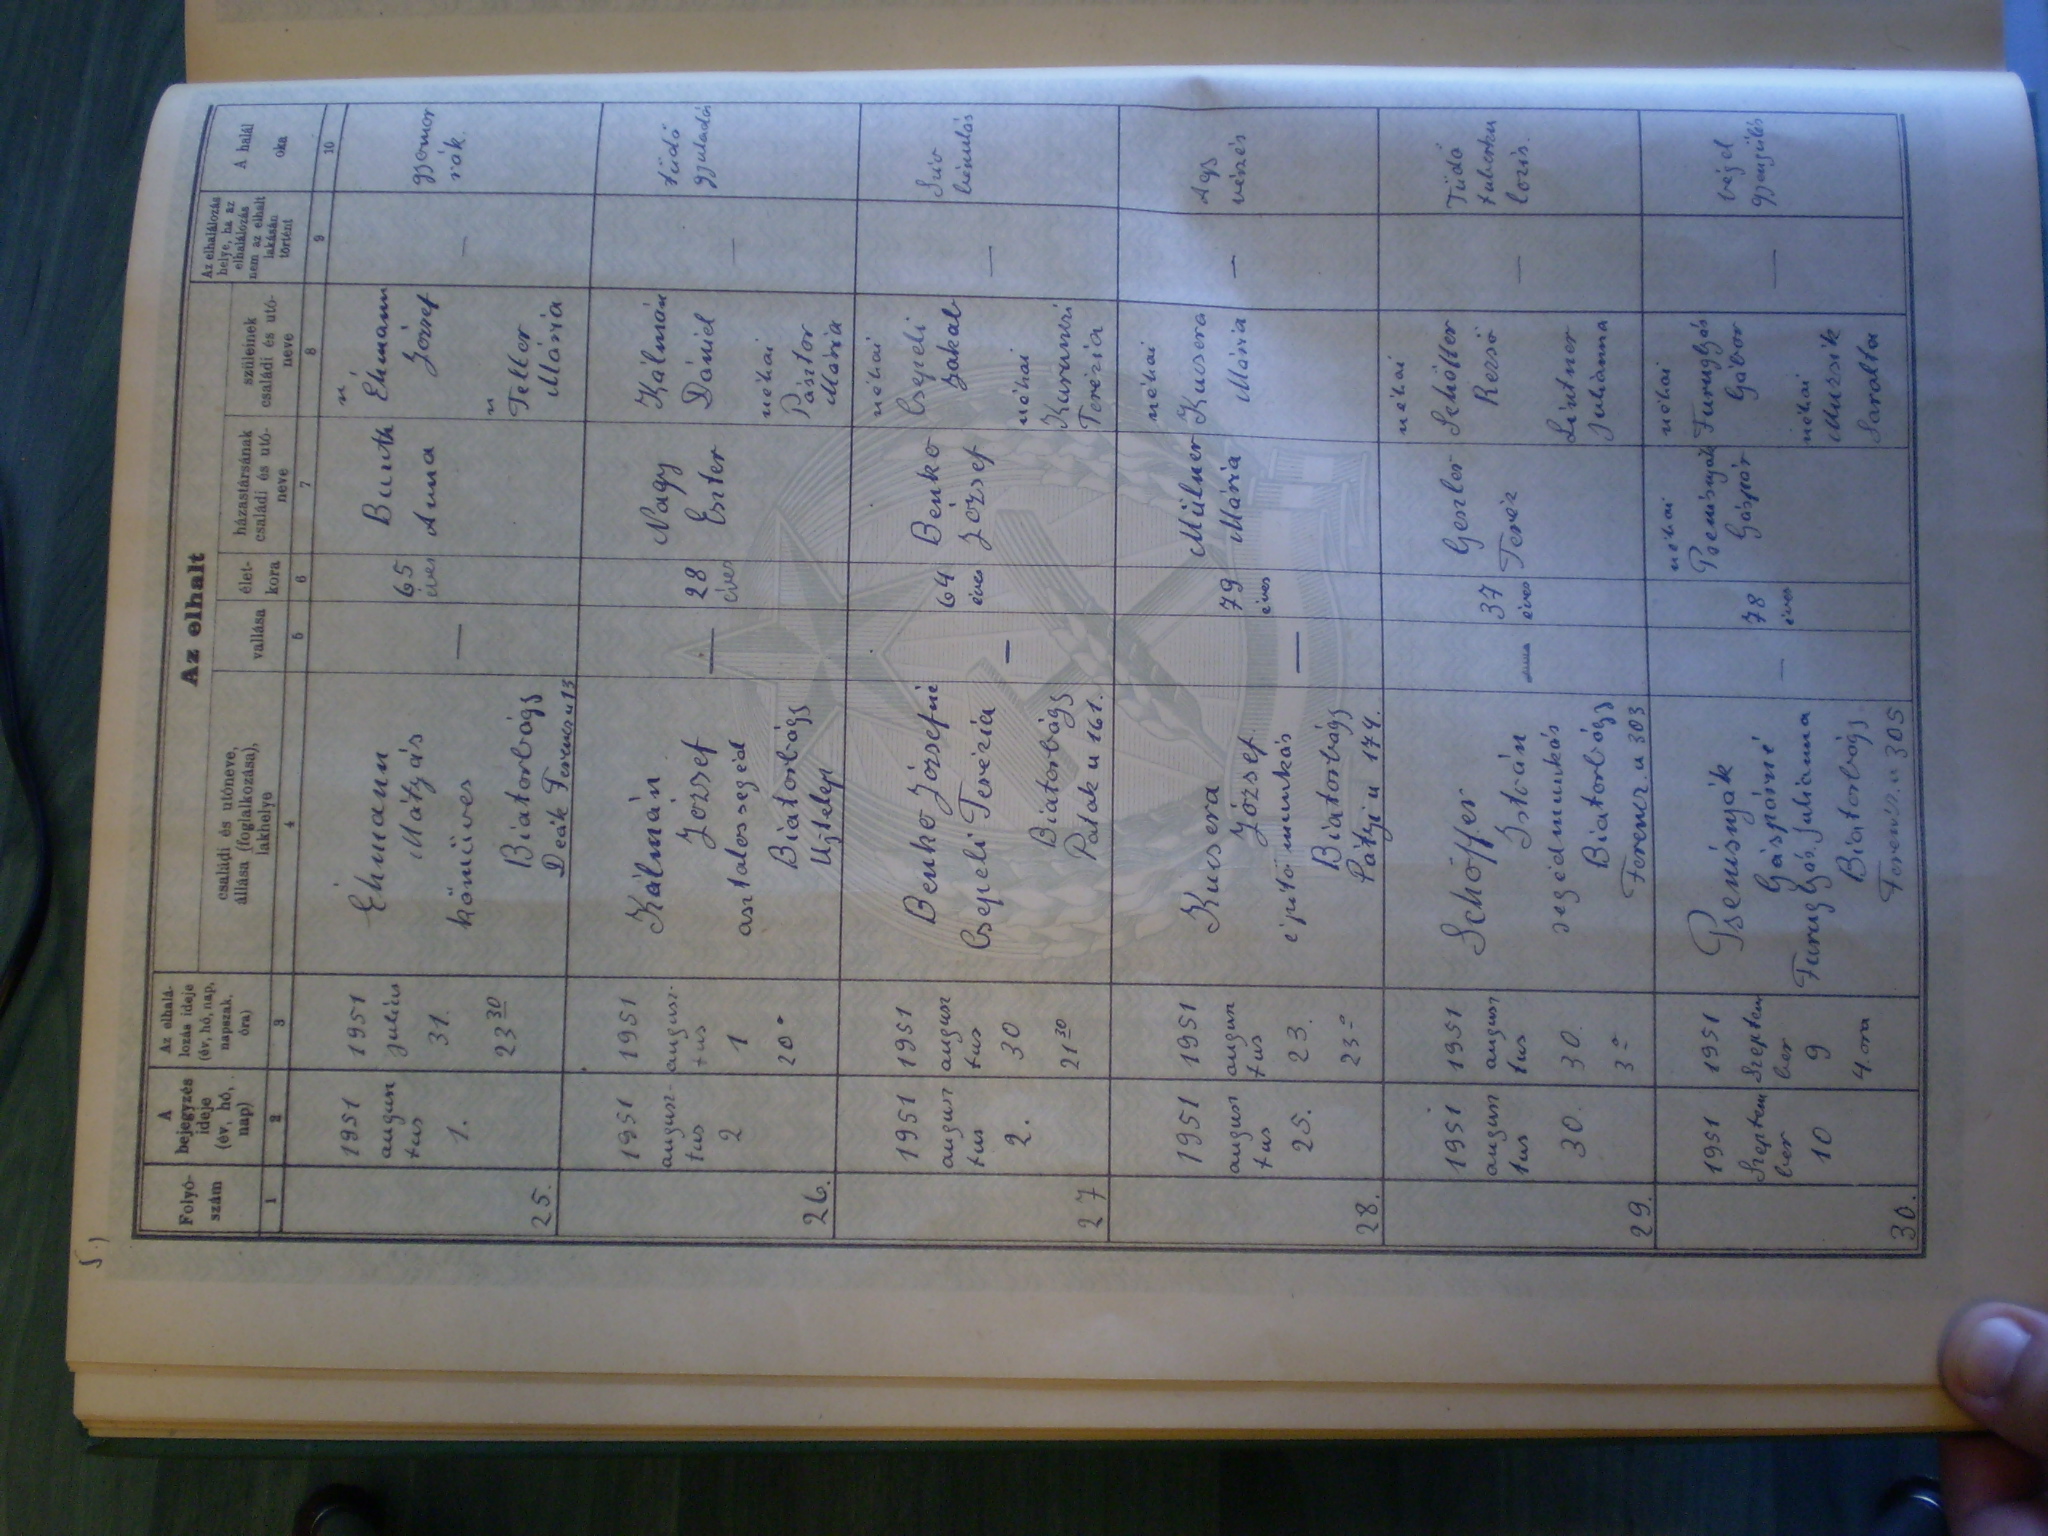 5.)
Az elhalt
Folyó-
szám
A
bejegyzés
ideje
(év, hó,
nap)
Az elhalá-
lozás ideje
(év, hó, nap,
napszak,
óra)
családi és utóneve,
állása (foglalkozása),
lakhelye
vallása
élet-
kora
házastársának
családi és utó-
neve
szüleinek
családi és utó-
neve
Az elhalálozás
helye, ha az
elhalálozás
nem az elhalt
lakásán
történt
A halál
oka
1
2
3
4
5
6
7
8
9
10
25.
1951
augusz
tus
1.
1951
julius
31.
23 30
Éhmann
Mátyás
kőműves
Biatorbágy
Deák Ferenc u 13
—
65
éves
Buth
Anna
n
Éhmann
József
n
Teller
Mária
—
gyomor
rák.
26.
1951
augusz-
tus
2
1951
augusz-
tus
1
20 °
Kálmán
József
asztalossegéd
Biatorbágy
Ujtelep
—
28
éves
Nagy
Eszter
Kálmán
Dániel
néhai
Pásztor
Mária
—
tüdő
gyuladás
27
1951
augusz
tus
2.
1951
augusz
tus
30
21 30
Benkó Józsefné
Csepeli Terézia
Biatorbágy
Patak u 161.
—
64
éves
Benkó
József
néhai
Csepeli
Jakab
néhai
Kurunczi
Terézia
—
Sziv
bénulás
28.
1951
augusz
tus
25.
1951
augusz
tus
23.
23 °
Kucsera
József
építőmunkás
Biatorbágy
Pátyi u 174.
—
79
éves
Müllner
Mária
néhai
Kucsera
Mária
—
Agy
vérzés
29.
1951
augusz
tus
30.
1951
augusz
tus
30.
3 °
Schöffer
István
segédmunkás
Biatorbágy
Ferenc u 303
—
37
éves
Geszler
Teréz
néhai
Schöffer
Rezső
Lintner
Julianna
—
Tüdő
tuberku
lozis.
30.
1951
Szeptem
ber
10
1951
Szeptem
ber
9
4. óra
Psenisnyák
Gáspárné
Furuglyás Julianna
Biatorbágy
Ferenc u 305
—
78
éves
néhai
Psenisnyák
Gáspár
néhai
Furuglyás
Gábor
néhai
Murzsik
Sarolta
—
végel
gyengülés